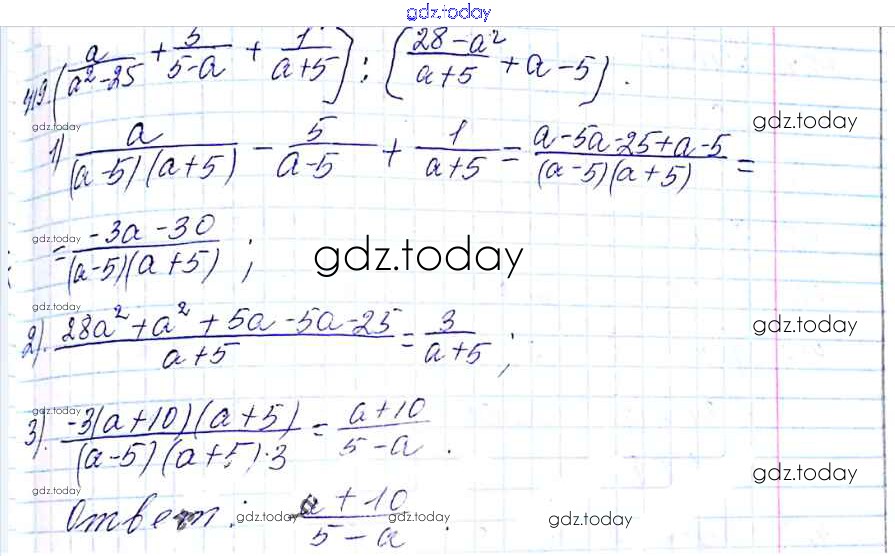 gdz.today
419. (a/(a²-25) + 5/(5-a) + 1/(a+5)) : ((28-a²)/(a+5) + a - 5).
gdz.today gdz.today
1) a/((a-5)(a+5)) - 5/(a-5) + 1/(a+5) = (a-5a-25+a-5)/((a-5)(a+5)) =
gdz.today
= (-3a-30)/((a-5)(a+5)) ;
gdz.today
gdz.today
2). (28a²+a²+5a-5a-25)/(a+5) = 3/(a+5) ;
gdz.today
gdz.today
3). (-3(a+10)(a+5))/((a-5)(a+5)·3) = (a+10)/(5-a) .
gdz.today
gdz.today
Ответ: (a+10)/(5-a) .
gdz.today gdz.today gdz.today